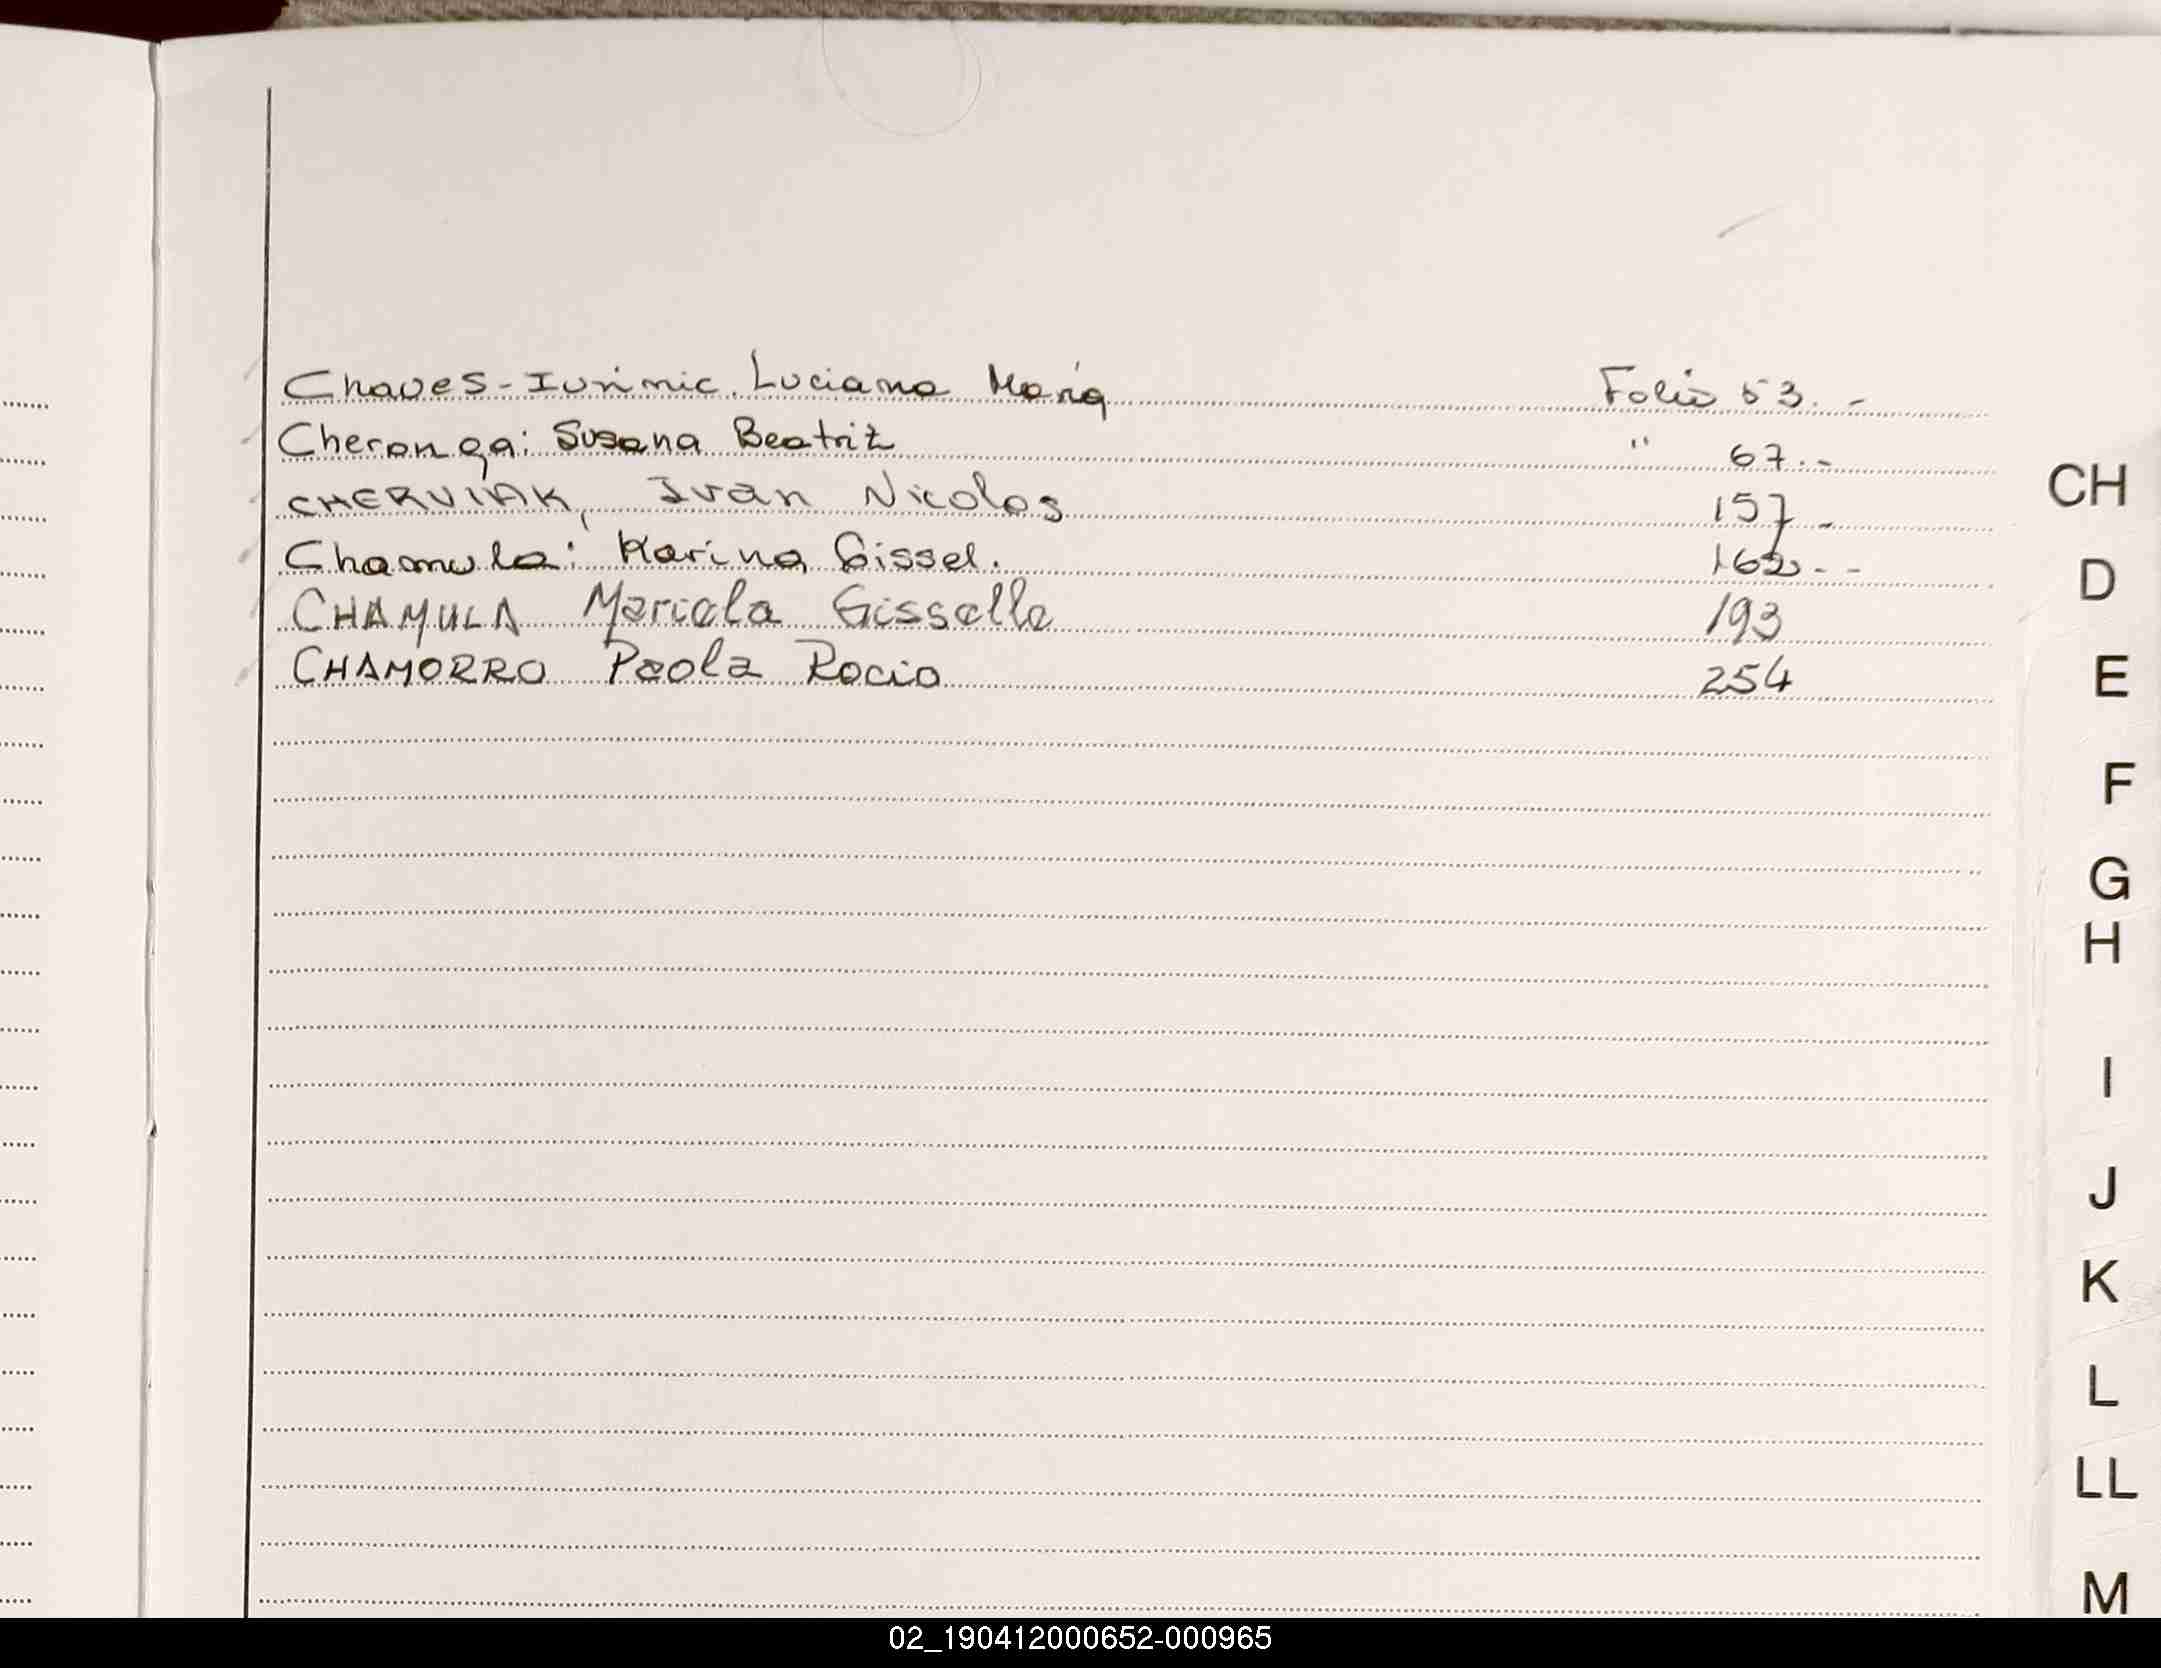 Chaves-Iurinic. Luciana María Folio 53. -
Cheronga: Susana Beatriz " 67. -
CHERVIAK, Ivan Nicolas 157 -
Chamula: Karina Gissel. 162 - -
CHAMULA Mariela Gisselle 193
CHAMORRO Paola Rocio 254
CH
D
E
F
G
H
I
J
K
L
LL
M
02_190412000652-000965